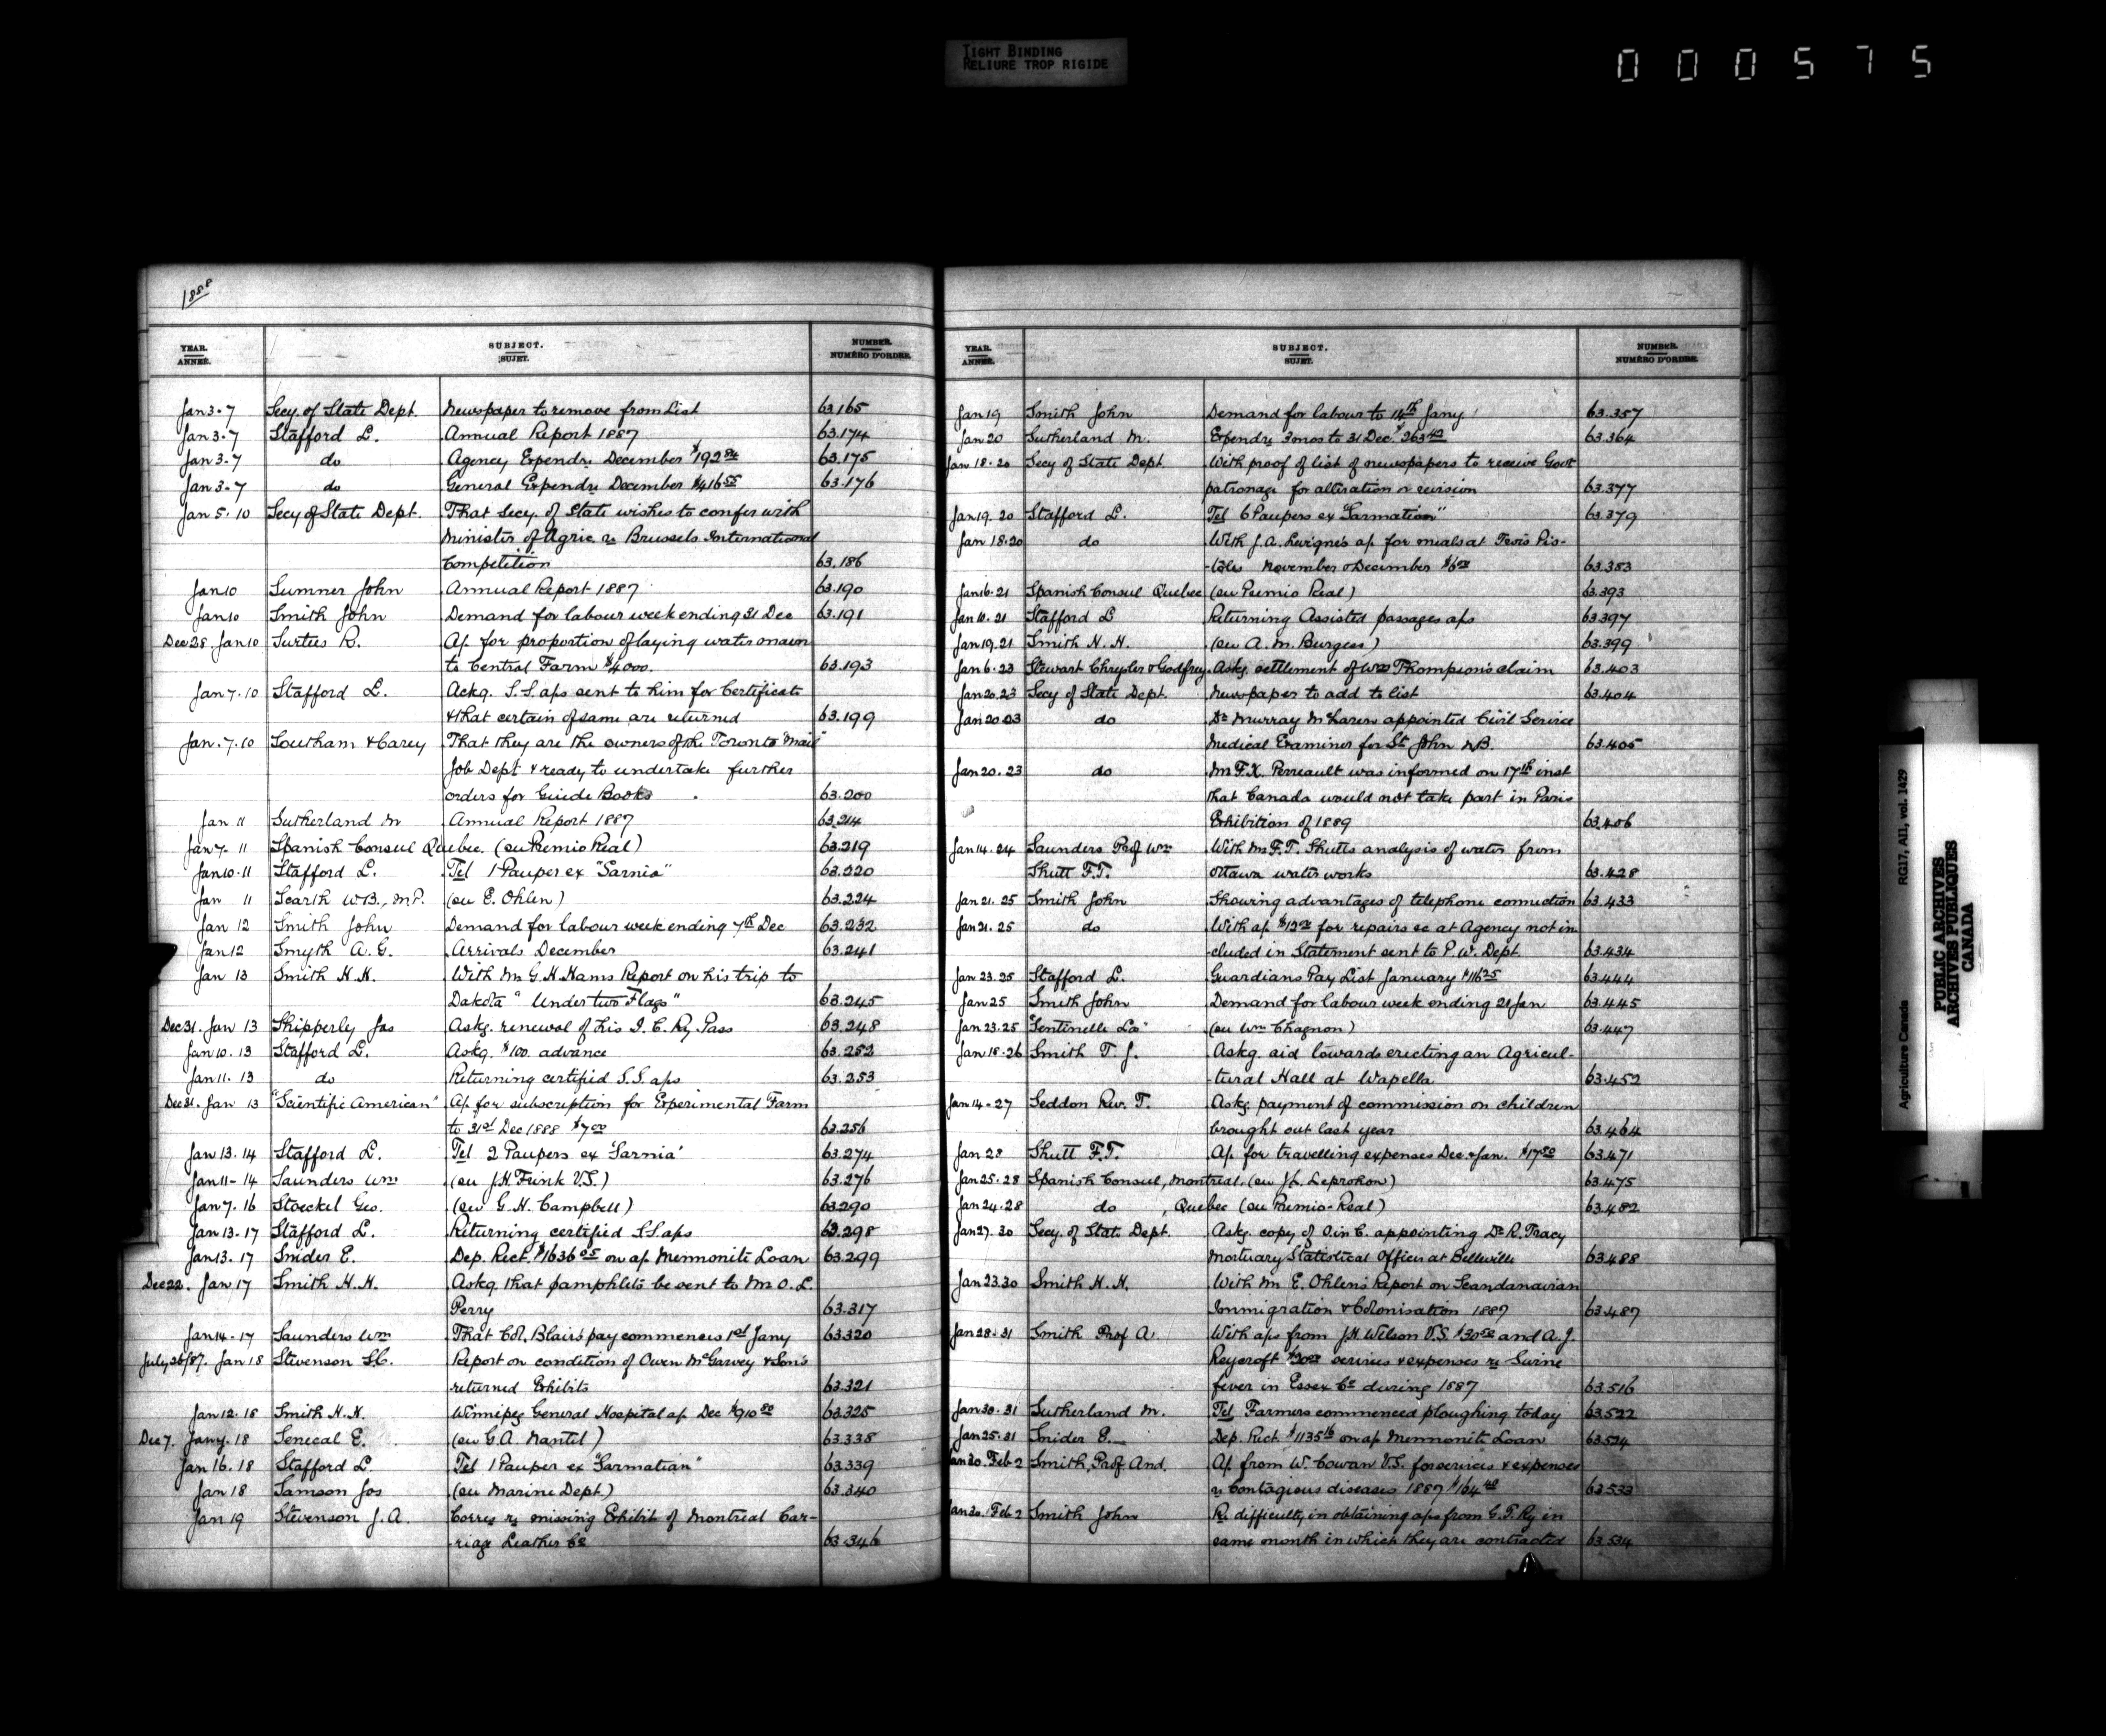 TIGHT BINDING
RELIURE TROP RIGIDE
000575
1888
YEAR. ANNÉE. SUBJECT. SUJET. NUMBER. NUMÉRO D'ORDRE.
Jan 3-7 Secy. of State Dept. Newspaper to remove from List 63.165
Jan 3-7 Stafford L. Annual Report 1887 63.174
Jan 3-7 do Agency Expendre December $192 84 63.175
Jan 3-7 do General Expendre December $416 55 63.176
Jan 5.10 Secy of State Dept. That Secy. of State wishes to confer with
Minister of Agric re Brussels International
Competition 63.186
Jan 10 Sumner John Annual Report 1887 63.190
Jan 10 Smith John Demand for labour week ending 31 Dec 63.191
Dec 28. Jan 10 Surtees R. Ap. for proportion of laying water main
to Central Farm $4000. 63.193
Jan 7.10 Stafford L. Ackg. S.S. aps sent to him for Certificate
& that certain of same are returned 63.199
Jan. 7.10 Southam & Carey That they are the owners of the Toronto "Mail"
Job Dept & ready to undertake further
orders for Guide Books 63.200
Jan 11 Sutherland M Annual Report 1887 63.214
Jan 7. 11 Spanish Consul Quebec. (su Premio Real) 63.219
Jan 10.11 Stafford L. Tel 1 Pauper ex "Sarnia" 63.220
Jan 11 Scarth W.B., M.P. (su E. Ohlen) 63.224
Jan 12 Smith John Demand for labour week ending 7th Dec 63.232
Jan 12 Smyth A.G. Arrivals December 63.241
Jan 13 Smith H.H. With Mr G.H. Hams Report on his trip to
Dakota "Under two Flags" 63.245
Dec 31. Jan 13 Skipperly Jas Askg. renewal of his I.C. Ry. Pass 63.248
Jan 10. 13 Stafford L. Askg. $100. advance 63.252
Jan 11. 13 do Returning certified S.S. aps 63.253
Dec 31. Jan 13 "Scientific American" Ap. for subscription for Experimental Farm
to 31st Dec 1888 $7 00 63.256
Jan 13.14 Stafford L. Tel 2 Paupers ex 'Sarnia' 63.274
Jan 11-14 Saunders Wm (su J.H. Frink V.S.) 63.276
Jan 7. 16 Stoeckel Geo. (su G.H. Campbell) 63.290
Jan 13.17 Stafford L. Returning certified S.S. aps 63.298
Jan 13. 17 Snider E. Dep. Rect. $1636 05 on ap Mennonite Loan 63.299
Dec 22. Jan 17 Smith H.H. Askg. that pamphlets be sent to Mr O.L.
Perry 63.317
Jan 14-17 Saunders Wm That Col. Blair's pay commences 1st Jany 63.320
July 26/87. Jan 18 Stevenson S.C. Report on condition of Owen McGarvey & Son's
returned Exhibits 63.321
Jan 12.18 Smith H.H. Winnipeg General Hospital ap. Dec $910 80 63.325
Dec 7. Jany. 18 Senecal E. (su G.A. Nantel) 63.338
Jan 16.18 Stafford L. Tel 1 Pauper ex "Sarmatian" 63.339
Jan 18 Samson Jos (su Marine Dept.) 63.340
Jan 19 Stevenson J.A. Corres re missing Exhibit of Montreal Car-
riage Leather Co 63.346
YEAR. ANNÉE. SUBJECT. SUJET. NUMBER. NUMÉRO D'ORDRE.
Jan 19 Smith John Demand for labour to 14th Jany 63.357
Jan 20 Sutherland M. Expendre 3 mos to 31 Dec. $263 40 63.364
Jan 18.20 Secy of State Dept With proof of list of newspapers to receive Govt
patronage for alteration or revision 63.377
Jan 19. 20 Stafford L. Tel 6 Paupers ex "Sarmation" 63.379
Jan 18.20 do With J.A. Levigne's ap. for meals at Trois Pis-
-toles November & December $6 00 63.383
Jan 16.21 Spanish Consul Quebec (su Premio Real) 63.393
Jan 18. 21 Stafford L Returning Assisted passages aps 63.397
Jan 19.21 Smith H.H. (su A.M. Burgess) 63.399
Jan 6.23 Stewart Chrysler & Godfrey Askg. settlement of Wm Thompson's claim 63.403
Jan 20.23 Secy of State Dept. Newspaper to add to list 63.404
Jan 20.23 do Dr Murray McLaren appointed Civil Service
Medical Examiner for St John N.B. 63.405
Jan 20. 23 do Mr F.X. Perreault was informed on 17th inst
that Canada would not take part in Paris
Exhibition of 1889 63.406
Jan 14.24 Saunders Prof Wm With Mr F.T. Shutts analysis of water from
Shutt F.T. Ottawa water works 63.428
Jan 21. 25 Smith John Showing advantages of telephone connection 63.433
Jan 21. 25 do With ap $12 00 for repairs &c at Agency not in
-cluded in Statement sent to P.W. Dept 63.434
Jan 23.25 Stafford L. Guardians Pay List January $116 25 63.444
Jan 25 Smith John Demand for labour week ending 21 Jan 63.445
Jan 23.25 "Sentinelle La" (su Wm Chagnon) 63.447
Jan 18.26 Smith T.J. Askg. aid towards erecting an Agricul-
-tural Hall at Wapella 63.452
Jan 14-27 Seddon Rev. T. Askg. payment of commission on children
brought out last year 63.464
Jan 28 Shutt F.T. Ap. for travelling expenses Dec. & Jan. $17 80 63.471
Jan 25.28 Spanish Consul, Montreal. (su J.L. Leprohon) 63.475
Jan 24.28 do , Quebec (su Premio-Real) 63.482
Jan 27. 30 Secy. of State Dept. Askg. copy of O. in C. appointing Dr R. Tracy
Mortuary Statistical Officer at Belleville 63.488
Jan 23.30 Smith H.H. With Mr E. Ohlen's Report on Scandanavian
Immigration & Colonisation 1887 63.487
Jan 28.31 Smith Prof A. With aps from J.H. Wilson V.S. $30 50 and A.J.
Reycroft $20 00 services & expenses re Swine
fever in Essex Co during 1887 63.516
Jan 30.31 Sutherland M. Tel Farmers commenced ploughing today 63.522
Jan 25.31 Snider E. Dep. Rect. $1135 16 on ap Mennonite Loan 63.524
Jan 30. Feb 2 Smith, Prof. And. Ap. from W. Cowan V.S. for services & expenses
re Contagious diseases 1887 $164 40 63.533
Jan 30. Feb 2 Smith John R. difficulty in obtaining aps from G.T. Ry in
same month in which they are contracted 63.534
Agriculture Canada RG17, AII, vol. 1429
PUBLIC ARCHIVES
ARCHIVES PUBLIQUES
CANADA